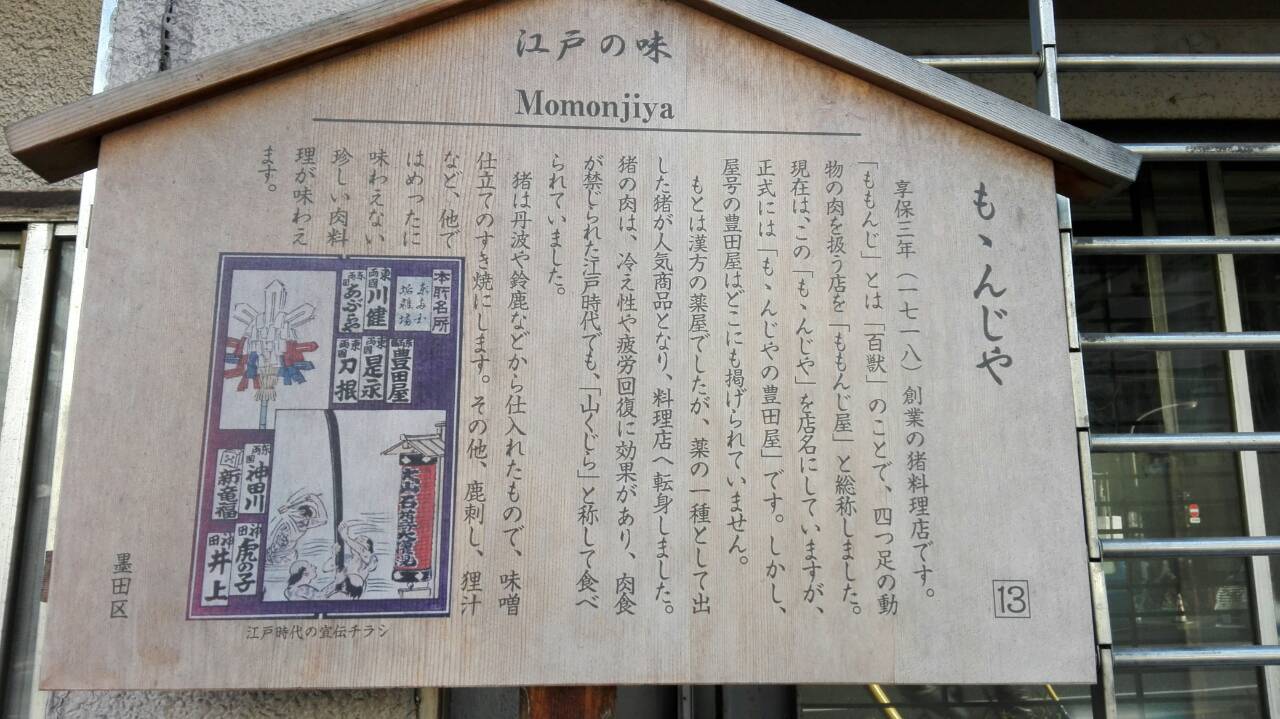 江戸の味
Momonjiya
もゝんじや
13
享保三年（一七一八）創業の猪料理店です。
「ももんじ」とは「百獣」のことで、四つ足の動
物の肉を扱う店を「ももんじ屋」と総称しました。
現在は、この「もゝんじや」を店名にしていますが、
正式には「もゝんじやの豊田屋」です。しかし、
屋号の豊田屋はどこにも掲げられていません。
もとは漢方の薬屋でしたが、薬の一種として出
した猪が人気商品となり、料理店へ転身しました。
猪の肉は、冷え性や疲労回復に効果があり、肉食
が禁じられた江戸時代でも、「山くじら」と称して食べ
られていました。
猪は丹波や鈴鹿などから仕入れたもので、味噌
仕立てのすき焼にします。その他、鹿刺し、狸汁
など、他で
はめったに
味わえない
珍しい肉料
理が味わえ
ます。
本所名所
豊田屋
東両国
川健
東両国
東両国
刀根
東両国
神田川
新竜福
神田
虎の子
神田
井上
江戸時代の宣伝チラシ
墨田区